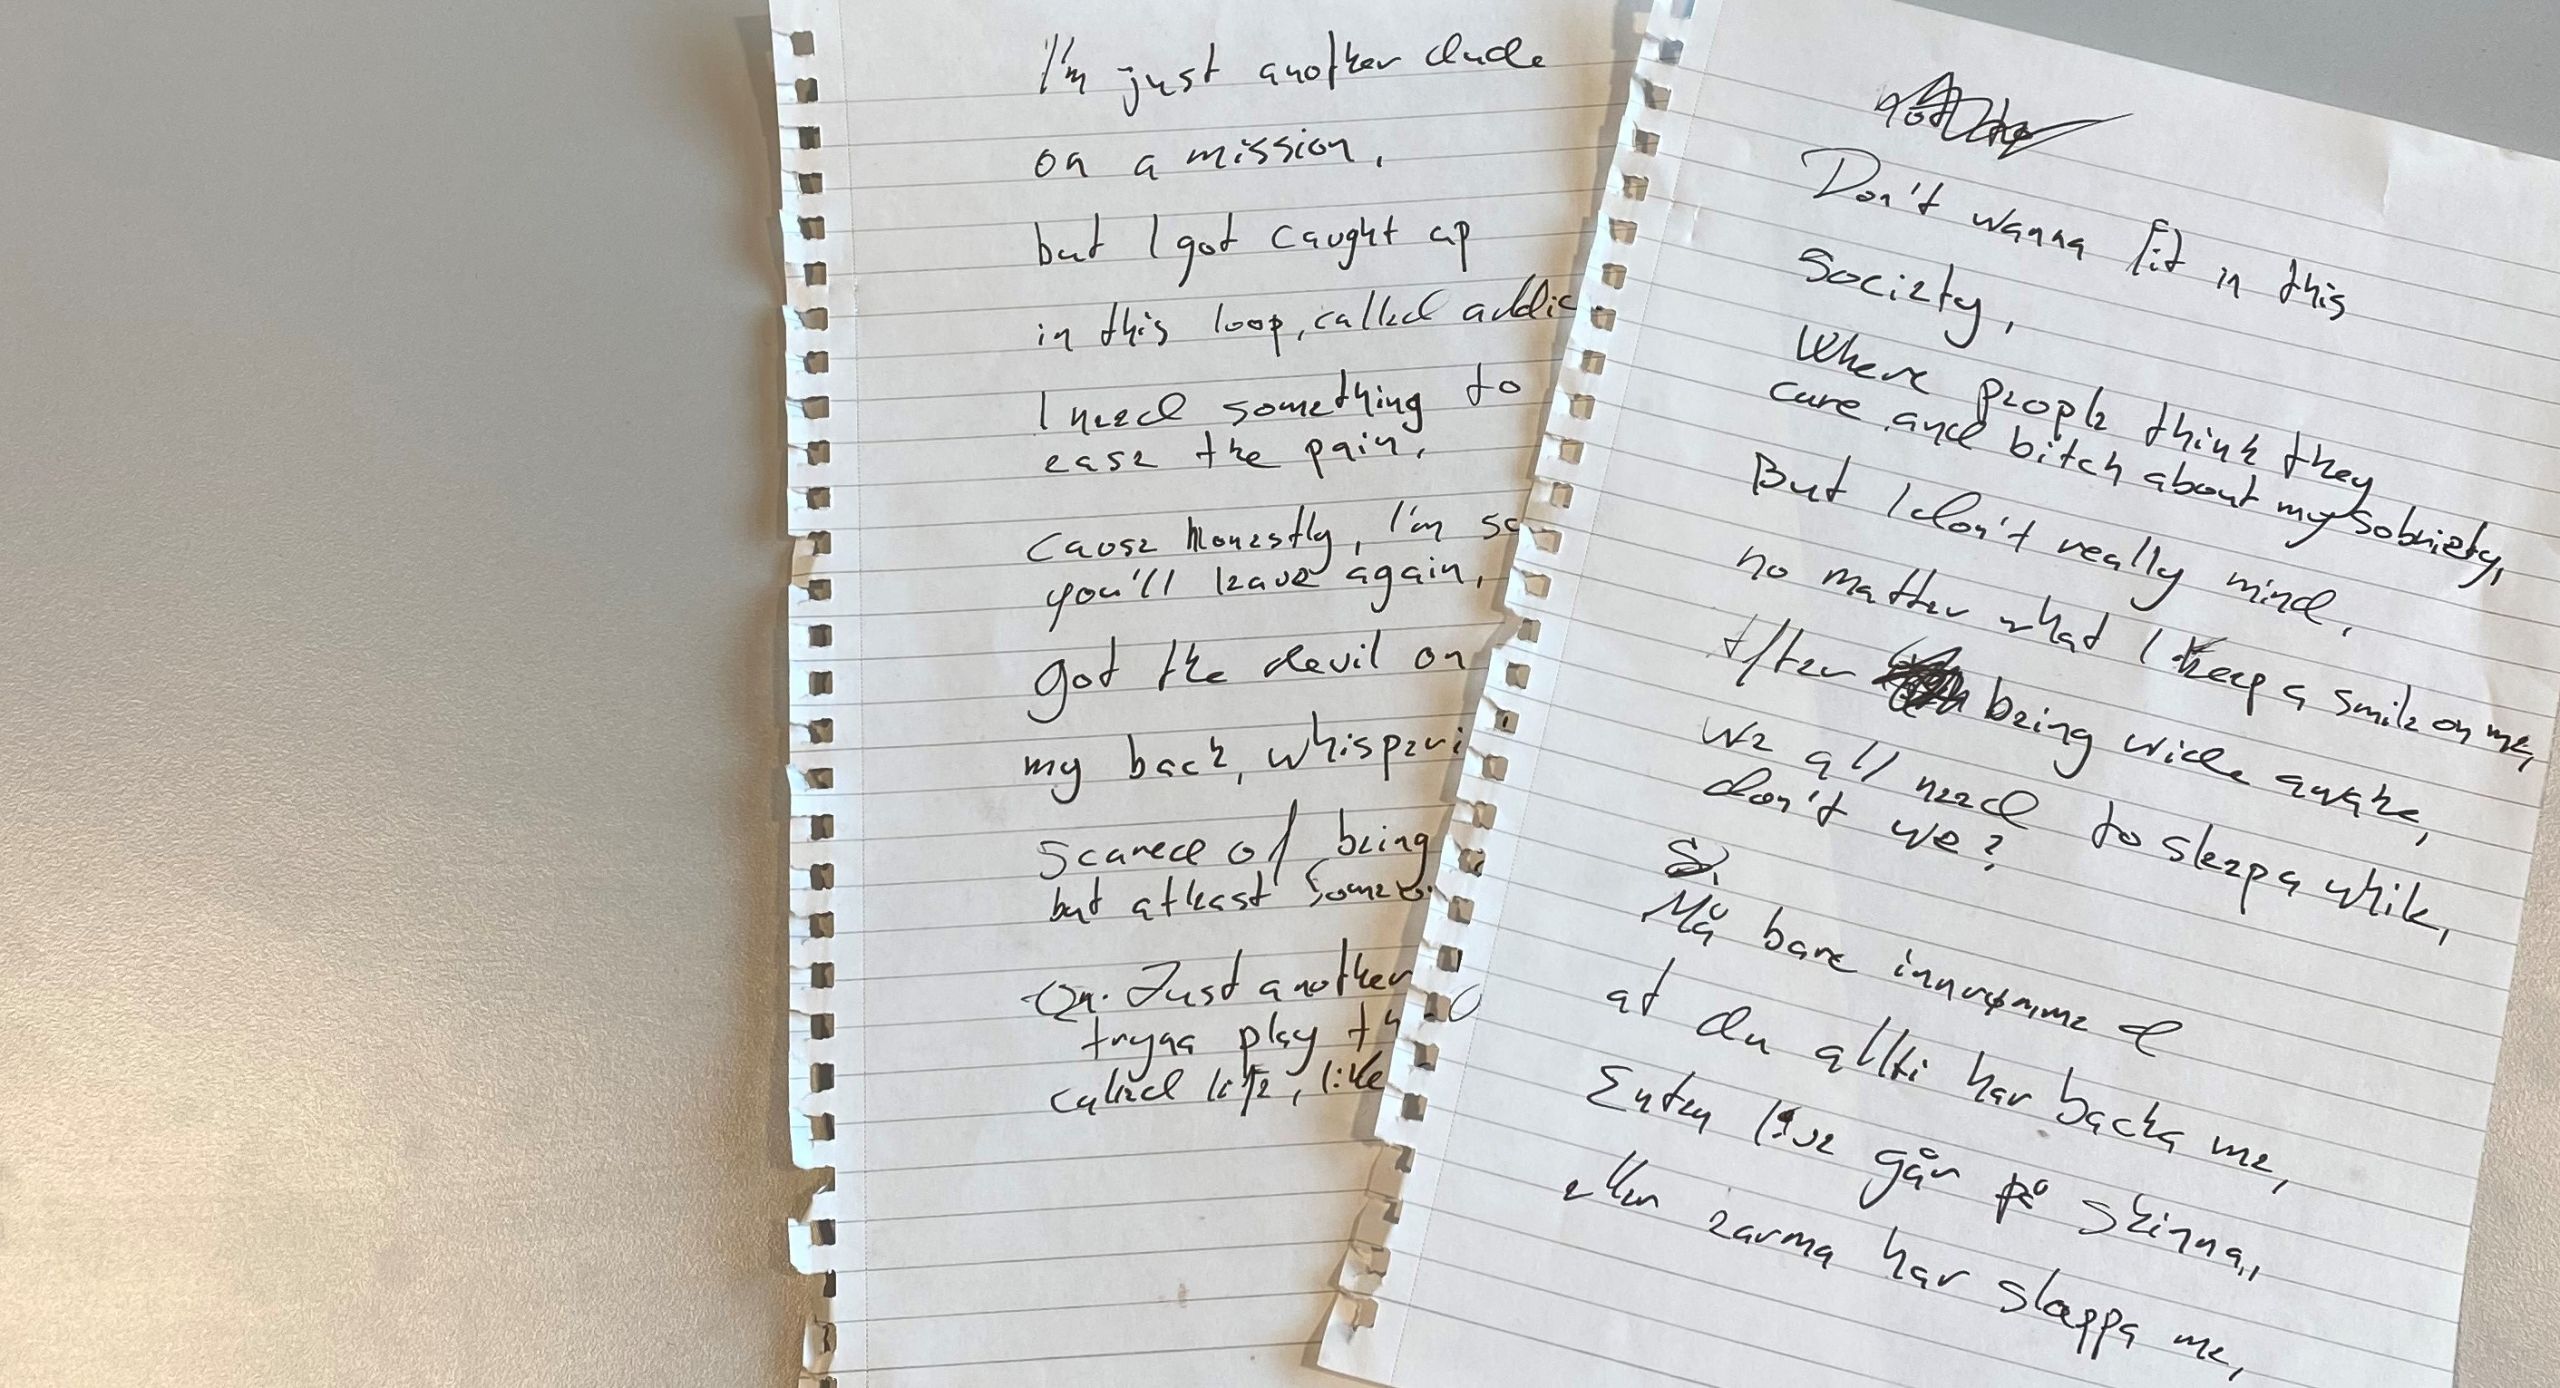 I'm just another dude
on a mission,
but I got caught up
in this loop, called addic
I need something to
ease the pain,
cause honestly, I'm sc
you'll leave again,
got the devil on
my back, whisperi
scared of being
but atleast someo
Just another
tryna play th
called life, like
Don't wanna fit in this
society,
Where people think they
care and bitch about my sobriety,
But I don't really mind,
no matter what I keep a smile on me,
After being wide awake,
We all need to sleep a while,
don't we?
Må bare innrømme d
at du allti har backa me,
Enten live går på skinna,
eller karma har slæppa me,